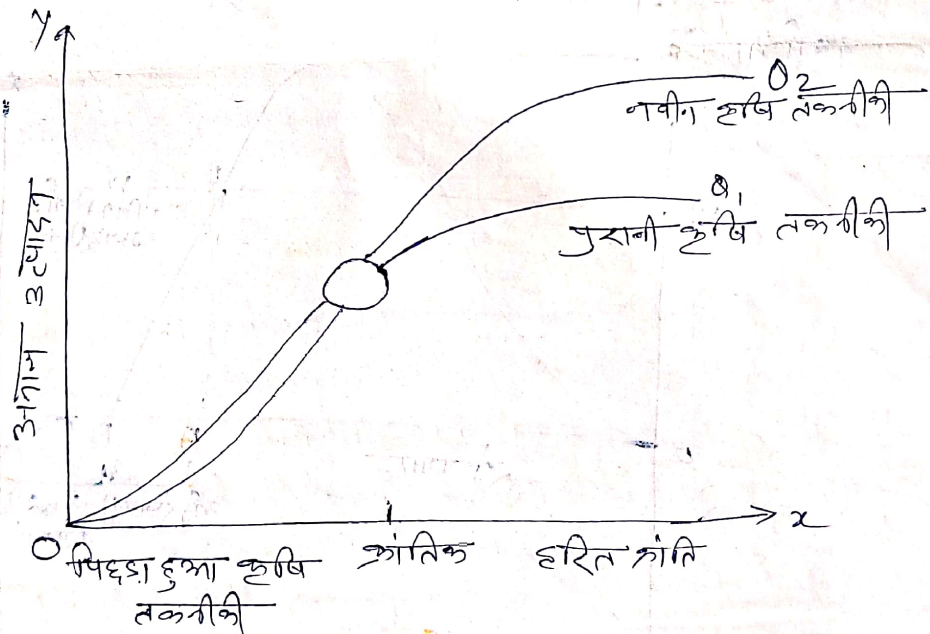 y
O2
नवीन कृषि तकनीकी
Q1
पुरानी कृषि तकनीकी
अनाज उत्पादन
x
O
पिछडा हुआ कृषि
तकनीकी
क्रांतिक
हरित क्रांति